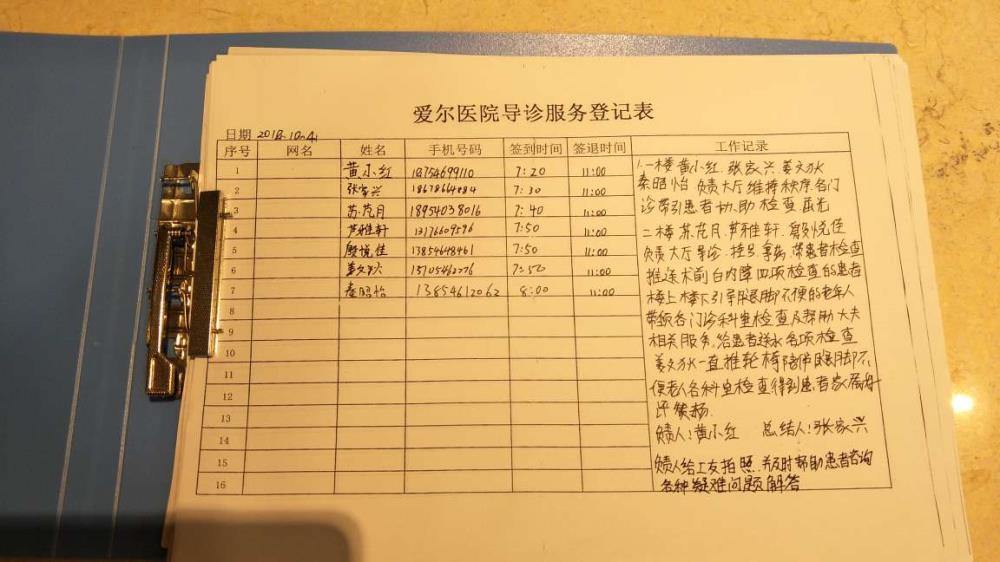 爱尔医院导诊服务登记表
日期 2018.10.4
序号 网名 姓名 手机号码 签到时间 签退时间 工作记录
1 黄小红 7:20 11:00
2 张家兴 7:30 11:00
3 苏茂月 18954038016 7:40 11:00
4 芦雅轩 13176609596 7:50 11:00
5 殷悦佳 13854648461 7:50 11:00
6 姜文 7:50 11:00
7 秦昭怡 13854612062 8:00 11:00
8
9
10
11
12
13
14
15
16
1.一楼黄小红.张家兴.姜文
秦昭怡 负责大厅维持秩序各门
诊带引患者协.助检查
二楼苏茂月.芦雅轩.殷悦佳
负责大厅导诊.挂号.拿药.带患者检查
推送术前白内障四项检查的患者
楼上楼下引导腿脚不便的老年人
带领各门诊科室检查及帮助大夫
相关服务.给患者送水各项检查
姜文 一直推轮椅陪伴腿脚不
便老人各科室检查得到患者家属好
评 表扬.
负责人:黄小红 总结人:张家兴
负责人给工友拍照.并及时帮助患者咨询
各种疑难问题解答